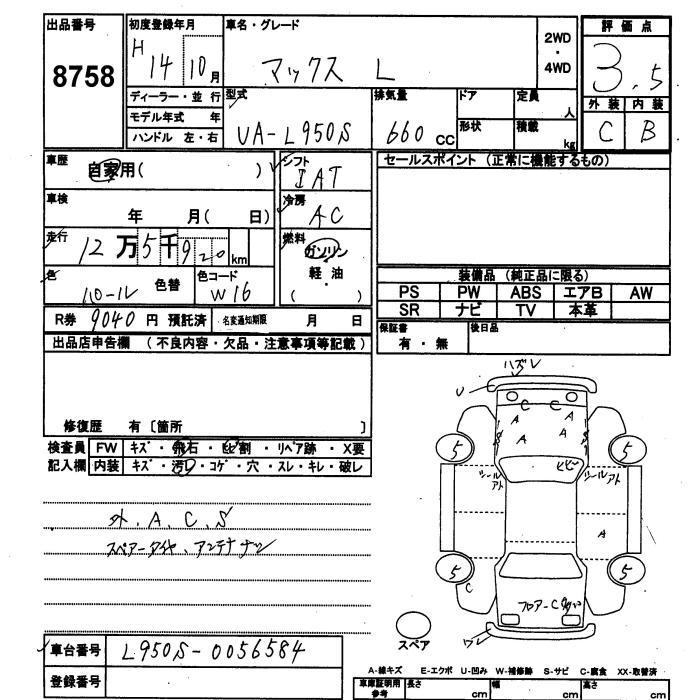 出品番号
8758
初度登録年月
H 14 10月
車名・グレード
マックス L
2WD
・
4WD
評価点
3.5
外装 内装
C B
ディーラー・並行
モデル年式 年
ハンドル 左・右
型式
UA-L950S
排気量
660 CC
ドア
形状
定員 人
積載 kg
車歴
自家用( )
シフト
IAT
セールスポイント (正常に機能するもの)
車検
年 月( 日)
冷房
AC
走行
12万5千920km
燃料
ガソリン
軽・油
( )
色
色替
色コード
W16
装備品 (純正品に限る)
PS PW ABS エアB AW
SR ナビ TV 本革
R券 9040 円 預託済
名変通知期限 月 日
保証書
有・無
後日品
出品店申告欄 (不良内容・欠品・注意事項等記載)
修復歴 有〔箇所 〕
検査員 FW キズ・飛石・ヒビ割・リペア跡・X要
記入欄 内装 キズ・汚レ・コゲ・穴・スレ・キレ・破レ
外.A.C.S
スペアータイヤ、アンテナナシ
ハズレ
U
C C
A A
A A
S S
5 5
ヒビ
シールアト シールアト
A
5 5
C
フロアーC
ワレ
スペア
車台番号 L950S-0056584
登録番号
A-線キズ E-エクボ U-凹み W-補修跡 S-サビ C-腐食 XX-取替済
車庫証明用参考 長さ cm 幅 cm 高さ cm